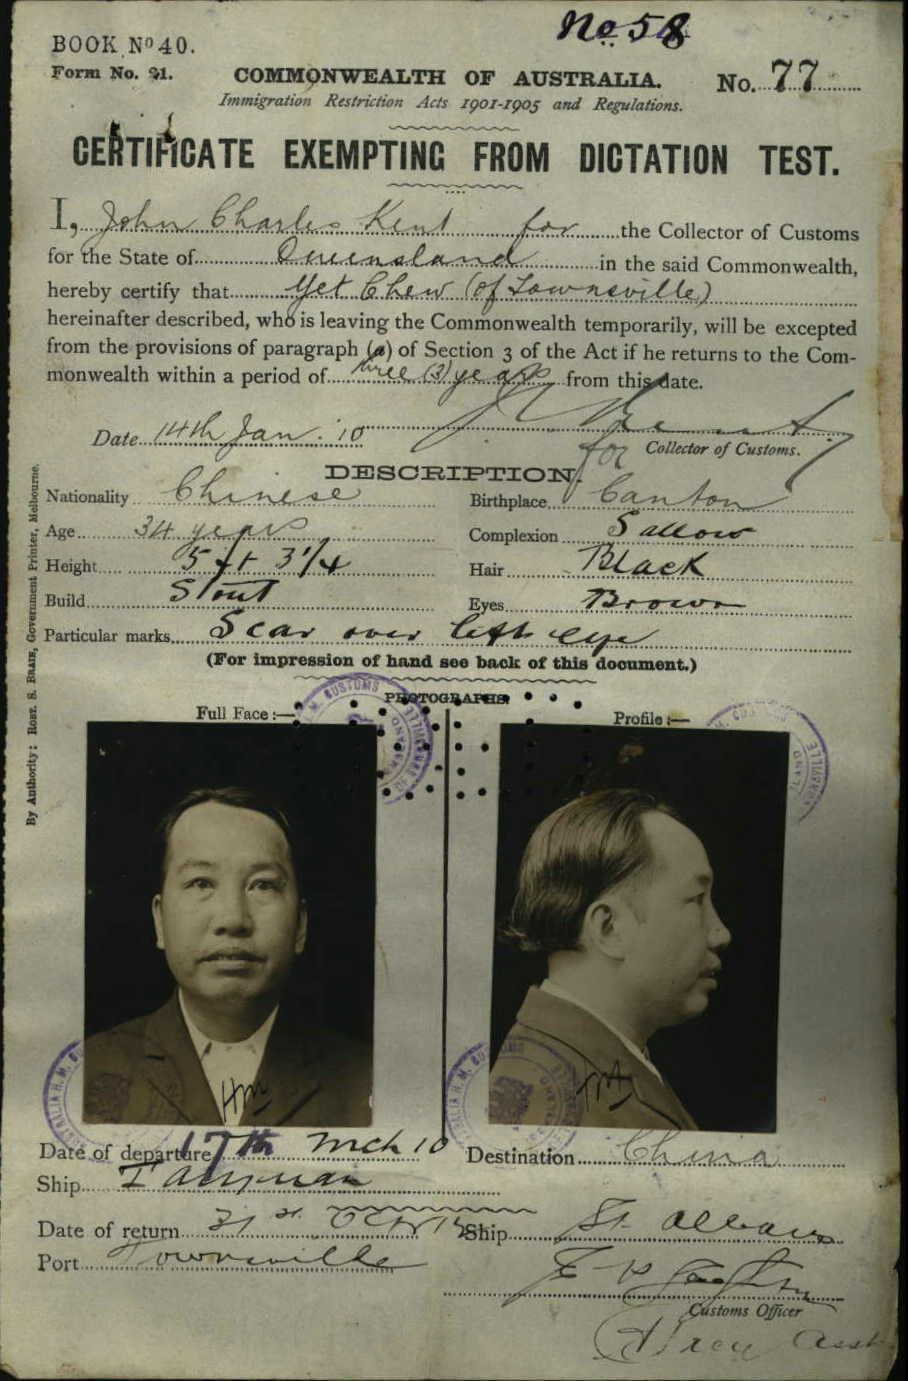 No 58
BOOK No 40.
Form No. 21.
COMMONWEALTH OF AUSTRALIA.
No. 77
Immigration Restriction Acts 1901-1905 and Regulations.
CERTIFICATE EXEMPTING FROM DICTATION TEST.
I, John Charles Kent for the Collector of Customs
for the State of Queensland in the said Commonwealth,
hereby certify that Yet Chew (of Townsville)
hereinafter described, who is leaving the Commonwealth temporarily, will be excepted
from the provisions of paragraph (a) of Section 3 of the Act if he returns to the Com-
monwealth within a period of three (3) years from this date.
Date 14th Jan. 10
for Collector of Customs.
DESCRIPTION.
Nationality Chinese Birthplace Canton
Age 34 years Complexion Sallow
Height 5 ft 3 1/4 Hair Black
Build Stout Eyes Brown
Particular marks Scar over left eye
(For impression of hand see back of this document.)
PHOTOGRAPHS.
Full Face :— Profile :—
H. M. CUSTOMS
HM
Date of departure 17th Mch 10 Destination China
Ship Taiyuan
Date of return 31st Oct Ship St Albans
Port Townsville
Customs Officer
By Authority: ROBT. S. BRAIN, Government Printer, Melbourne.